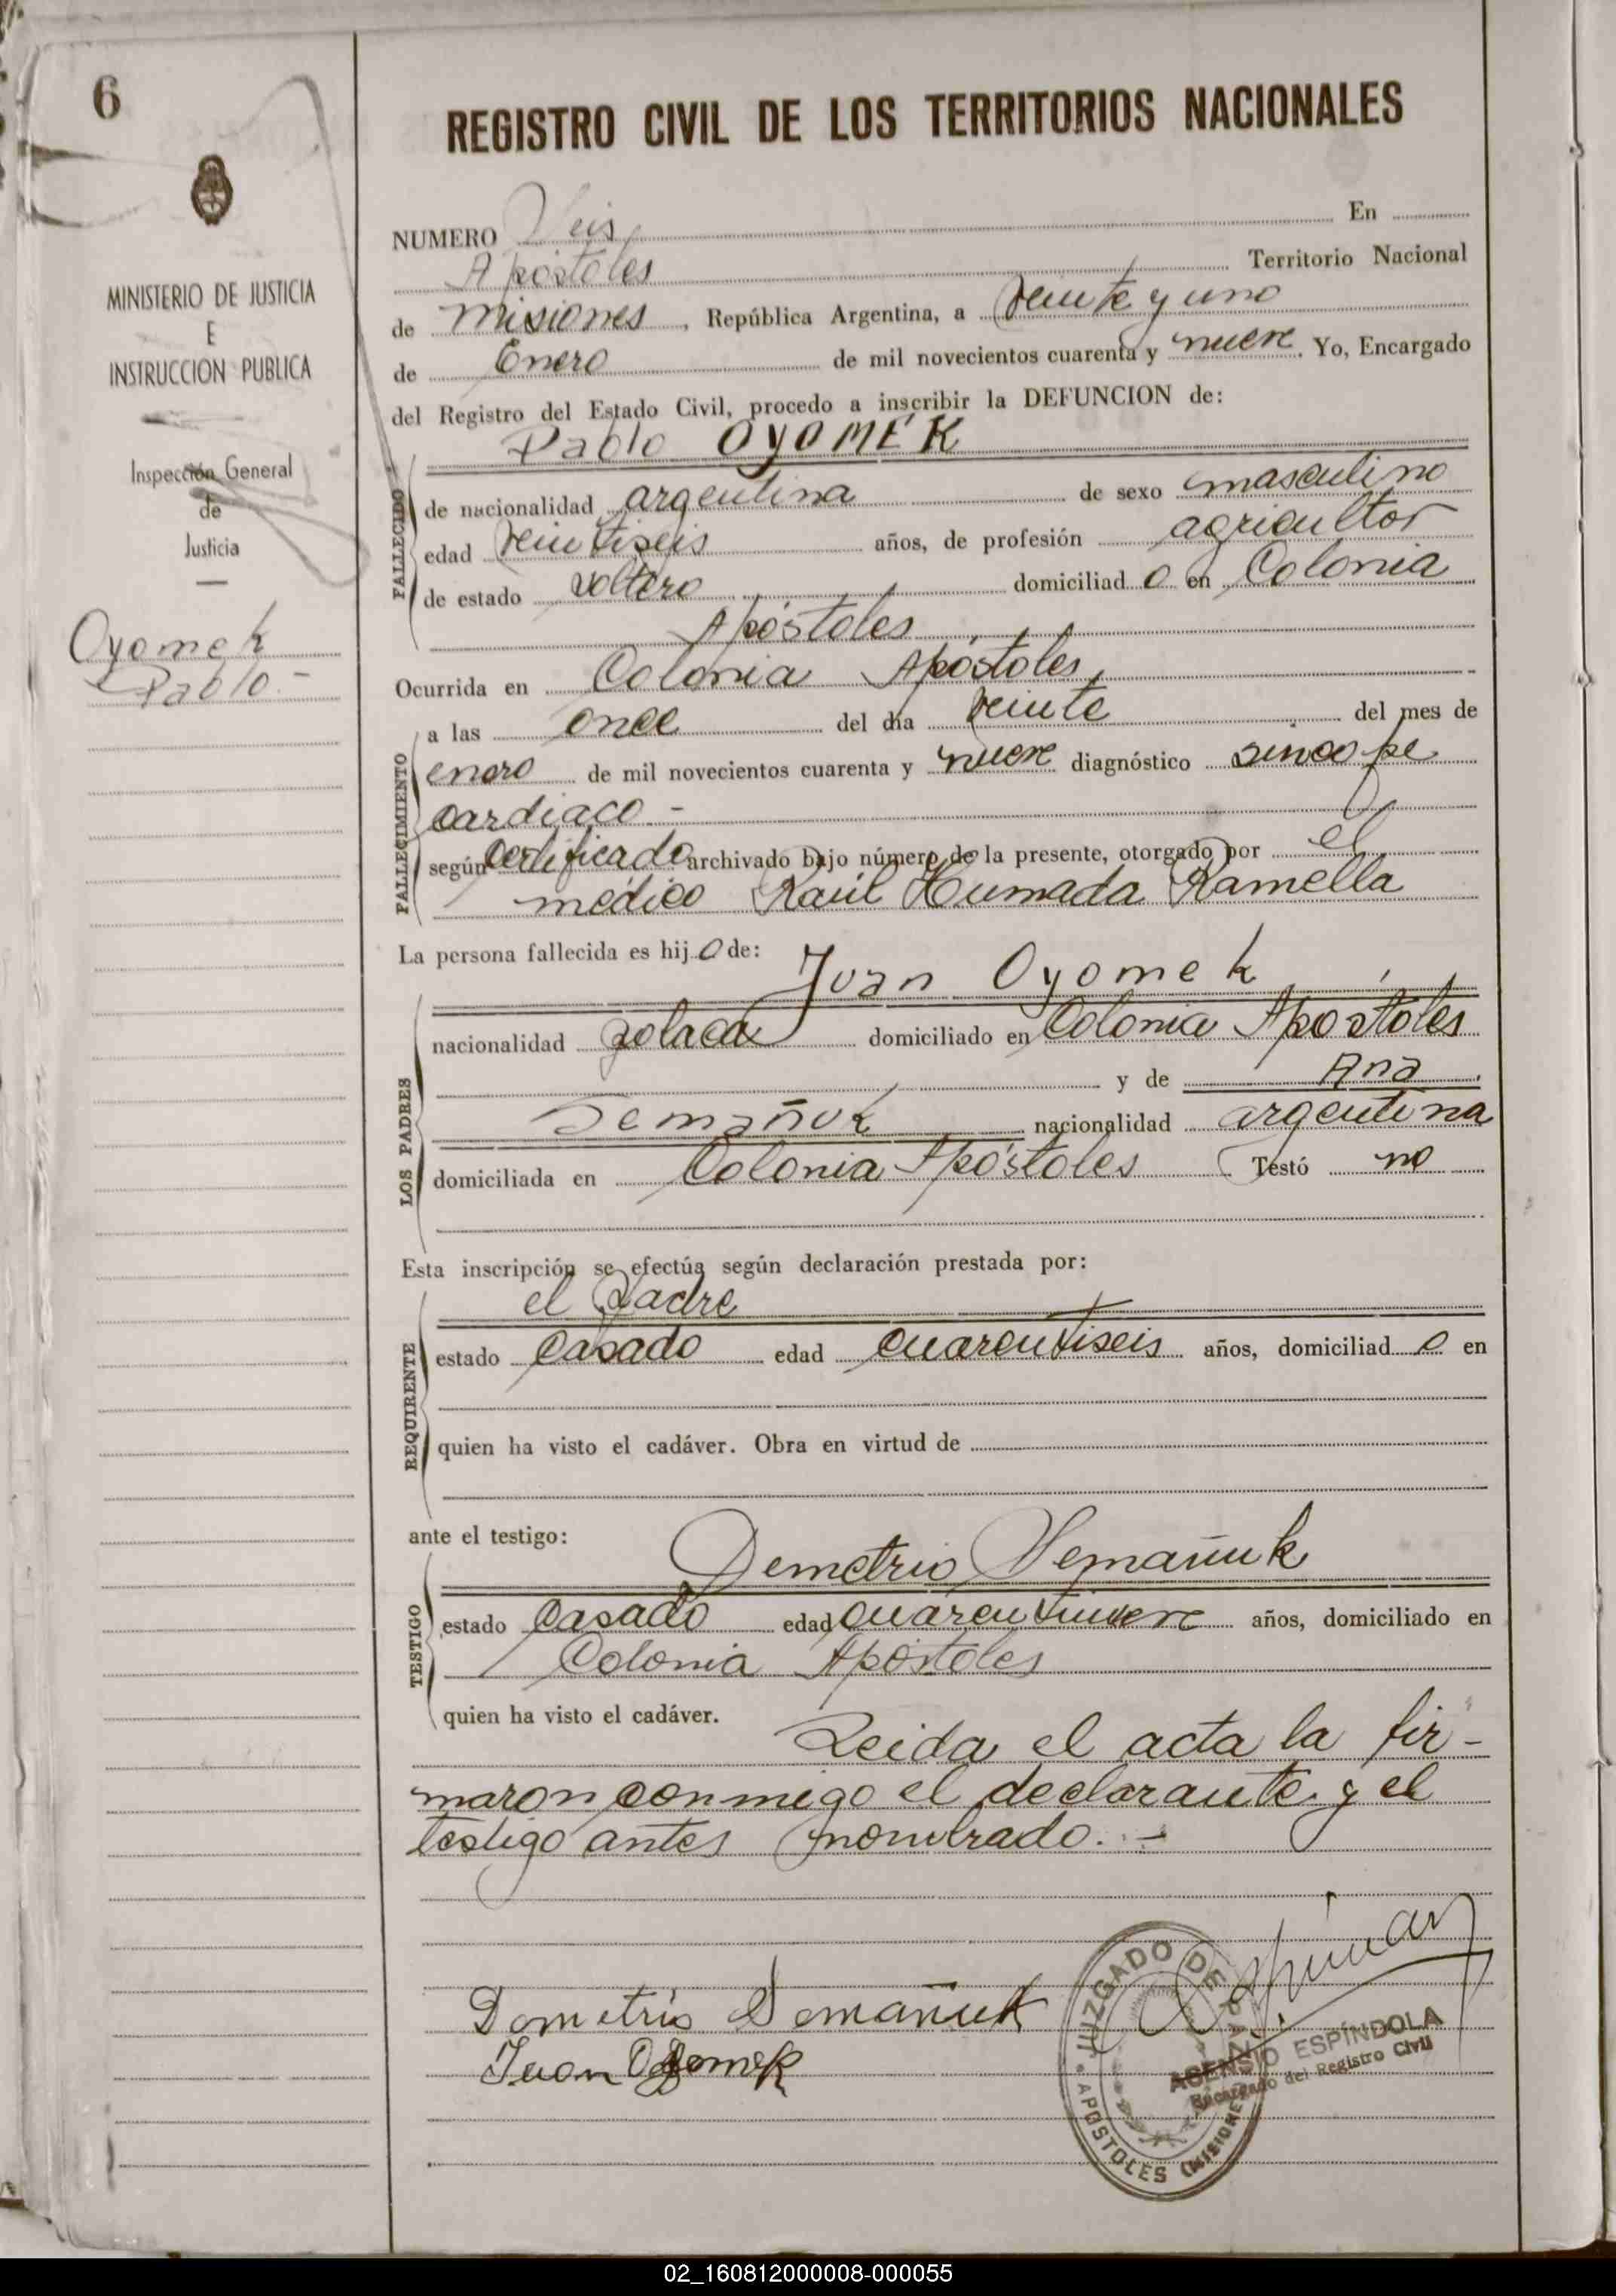 6
MINISTERIO DE JUSTICIA
E
INSTRUCCION PUBLICA
Inspección General
de
Justicia
Oyomek
Pablo.-
REGISTRO CIVIL DE LOS TERRITORIOS NACIONALES
NUMERO Seis En
Apóstoles Territorio Nacional
de Misiones, República Argentina, a veinte y uno
de Enero de mil novecientos cuarenta y nueve. Yo, Encargado
del Registro del Estado Civil, procedo a inscribir la DEFUNCION de:
Pablo OYOMEK
FALLECIDO
de nacionalidad argentina de sexo masculino
edad veintiseis años, de profesión agricultor
de estado soltero domiciliado en Colonia
Apóstoles
Ocurrida en Colonia Apóstoles,
FALLECIMIENTO
a las once del día veinte del mes de
enero de mil novecientos cuarenta y nueve diagnóstico sincope
cardiaco-
según certificado archivado bajo número de la presente, otorgado por el
médico Raúl Humada Ramella
La persona fallecida es hijo de:
Juan Oyomek
LOS PADRES
nacionalidad polaca domiciliado en Colonia Apóstoles
y de Ana
Semañuk nacionalidad argentina
domiciliada en Colonia Apóstoles Testó no
Esta inscripción se efectúa según declaración prestada por:
el padre
REQUIRENTE
estado casado edad cuarentiseis años, domiciliado en
quien ha visto el cadáver. Obra en virtud de
ante el testigo:
Demetrio Semañuk
TESTIGO
estado casado edad cuarentinueve años, domiciliado en
Colonia Apóstoles
quien ha visto el cadáver.
Leida el acta la fir-
maron conmigo el declarante y el
testigo antes nombrado.-
Demetrio Semañuk
Juan Oyomek
JUZGADO DE PAZ
APOSTOLES (MISIONES)
ASENSIO ESPÍNDOLA
Encargado del Registro Civil
02_160812000008-000055